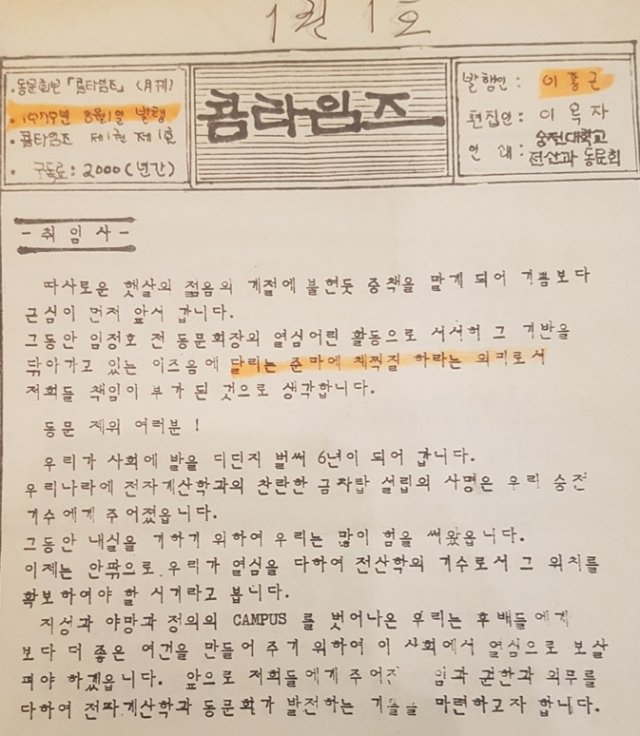 1권 1호
·동문회보 「콤타임즈」 (月刊)
·1979년 8월1일 발행
·콤타임즈 제1권 제1호
· 구독료 : 2000 (년간)
콤타임즈
발행인 : 이홍근
편집인 : 이옥자
숭전대학교
전산과 동문회
- 취 임 사 -
따사로운 햇살의 젊음의 계절에 불현듯 중책을 맡게 되어 기쁨보다
근심이 먼저 앞서 갑니다.
그동안 임정호 전 동문회장의 열심어린 활동으로 서서히 그 기반을
닦아가고 있는 이즈음에 달리는 준마에 채찍질 하라는 의미로서
저희들 책임이 부가 된 것으로 생각합니다.
동문 제위 여러분 !
우리가 사회에 발을 디딘지 벌써 6년이 되어 갑니다.
우리나라에 전자계산학과의 찬란한 금자탑 설립의 사명은 우리 숭전
기수에게 주어졌읍니다.
그동안 내실을 기하기 위하여 우리는 많이 힘을 써왔읍니다.
이제는 안팎으로 우리가 열심을 다하여 전산학의 기수로서 그 위치를
확보하여야 할 시기라고 봅니다.
지성과 야망과 정의의 CAMPUS 를 벗어나온 우리는 후배들에게
보다 더 좋은 여건을 만들어 주기 위하여 이 사회에서 열심으로 보살
펴야 하겠읍니다. 앞으로 저희들에게 주어진 임과 권한과 의무를
다하여 전자계산학과 동문회가 발전하는 기틀을 마련하고자 합니다.